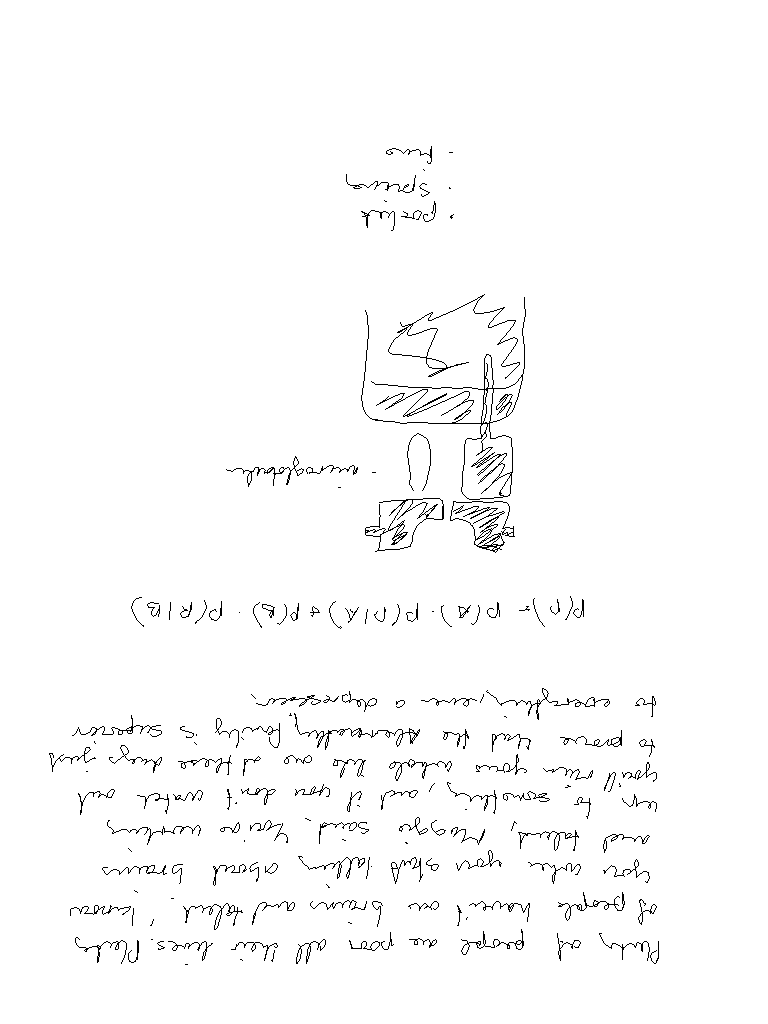 Plenty of people are poor all their lives. Plenty
of people haven't our brains and talent. I know
you when you start talking about brains
and talent, Maggie said. You're working
up to something, and if you don't watch out
you'll ruin your whole life one of these days just
to prove that the Abernathy family is superior
to everything, even a depression.
P(R) = P(A) · P(R|A) + P(B) · P(R|B)
- microglobulin
· 
· spring
- fine